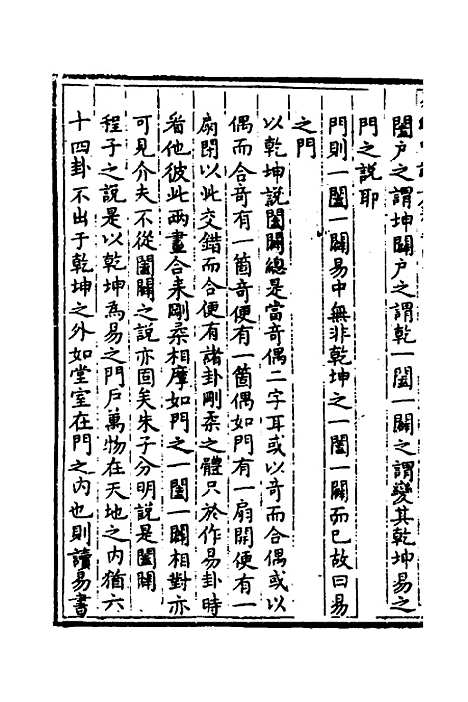 闔户之謂坤闢户之謂乾一闔一闢之謂變其乾坤易之
門之説耶
門則一闔一闢易中無非乾坤之一闔一闢而已故曰易
之門
以乾坤説闔闢總是當奇偶二字耳或以奇而合偶或以
偶而合奇有一箇奇便有一箇偶如門有一扇開便有一
扇閉以此交錯而合便有諸卦剛柔之體只於作易卦時
看他彼此兩畫合来剛柔相摩如門之一闔一闢相對亦
可見介夫不從闔闢之説亦固矣朱子分明説是闔闢
程子之説是以乾坤為易之門户萬物在天地之内猶六
十四卦不出于乾坤之外如堂室在門之内也則讀易書